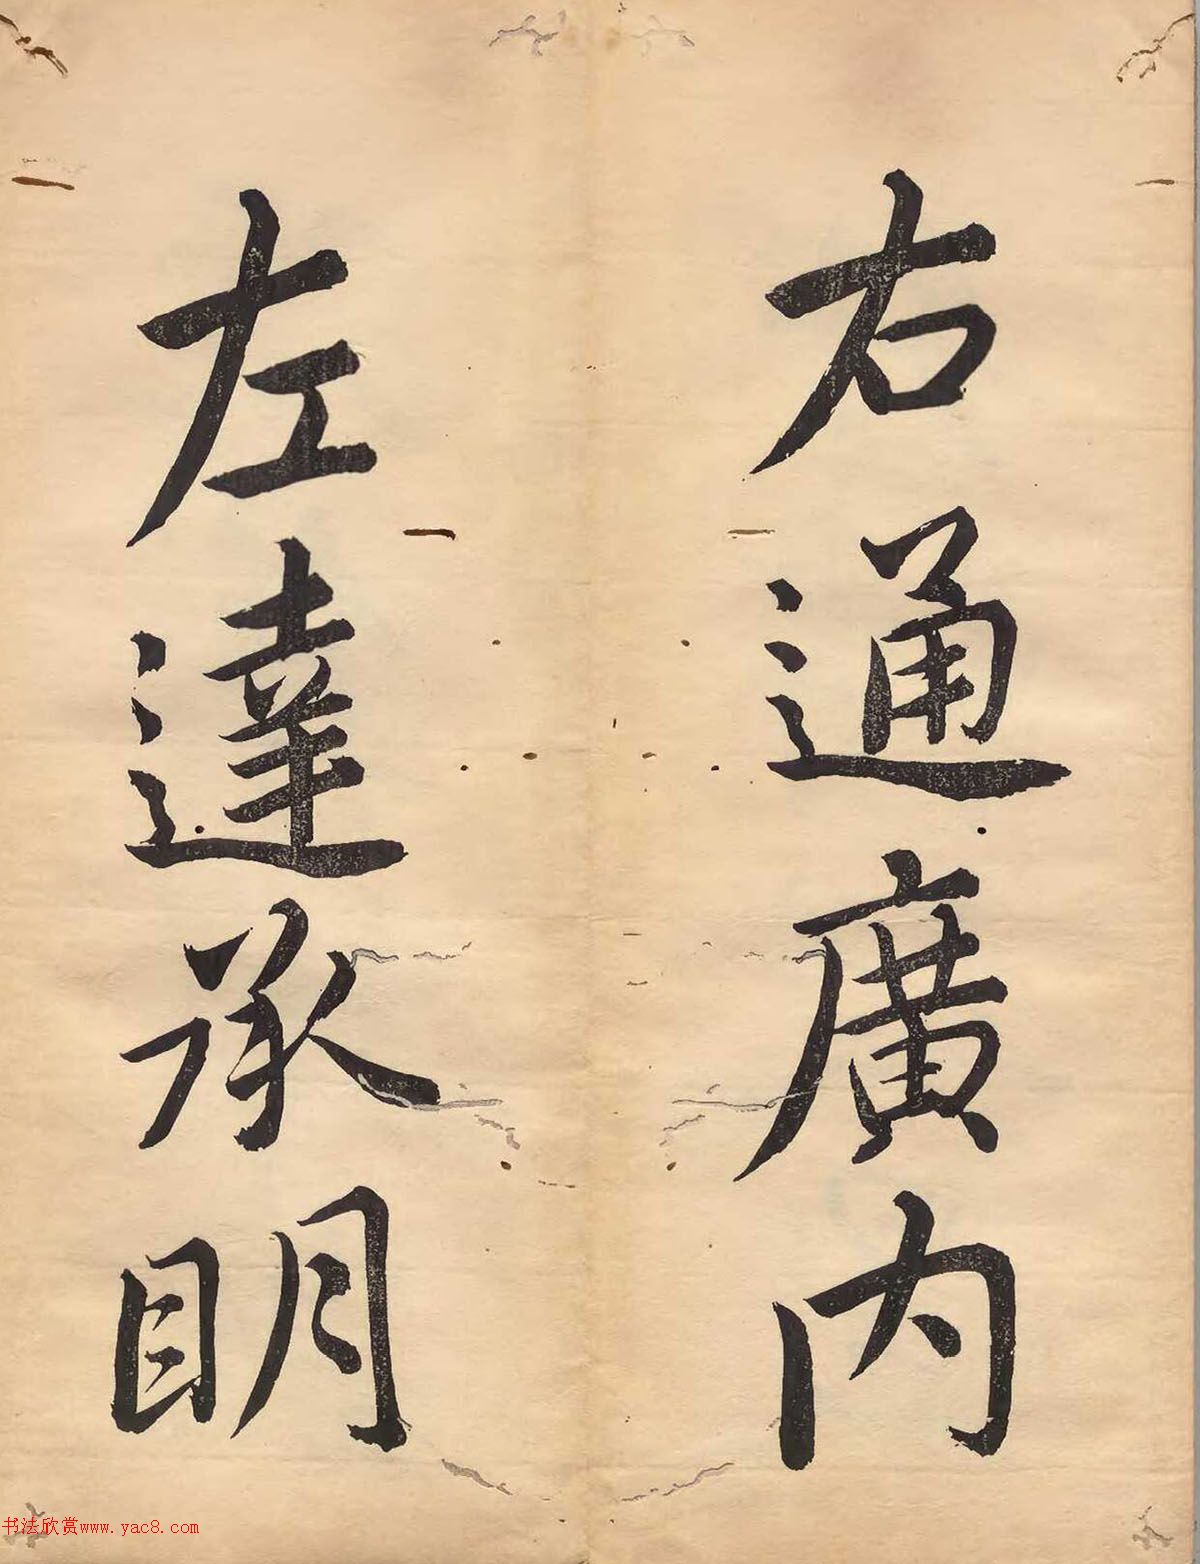 右通廣内
左達承明
书法欣赏www.yac8.com